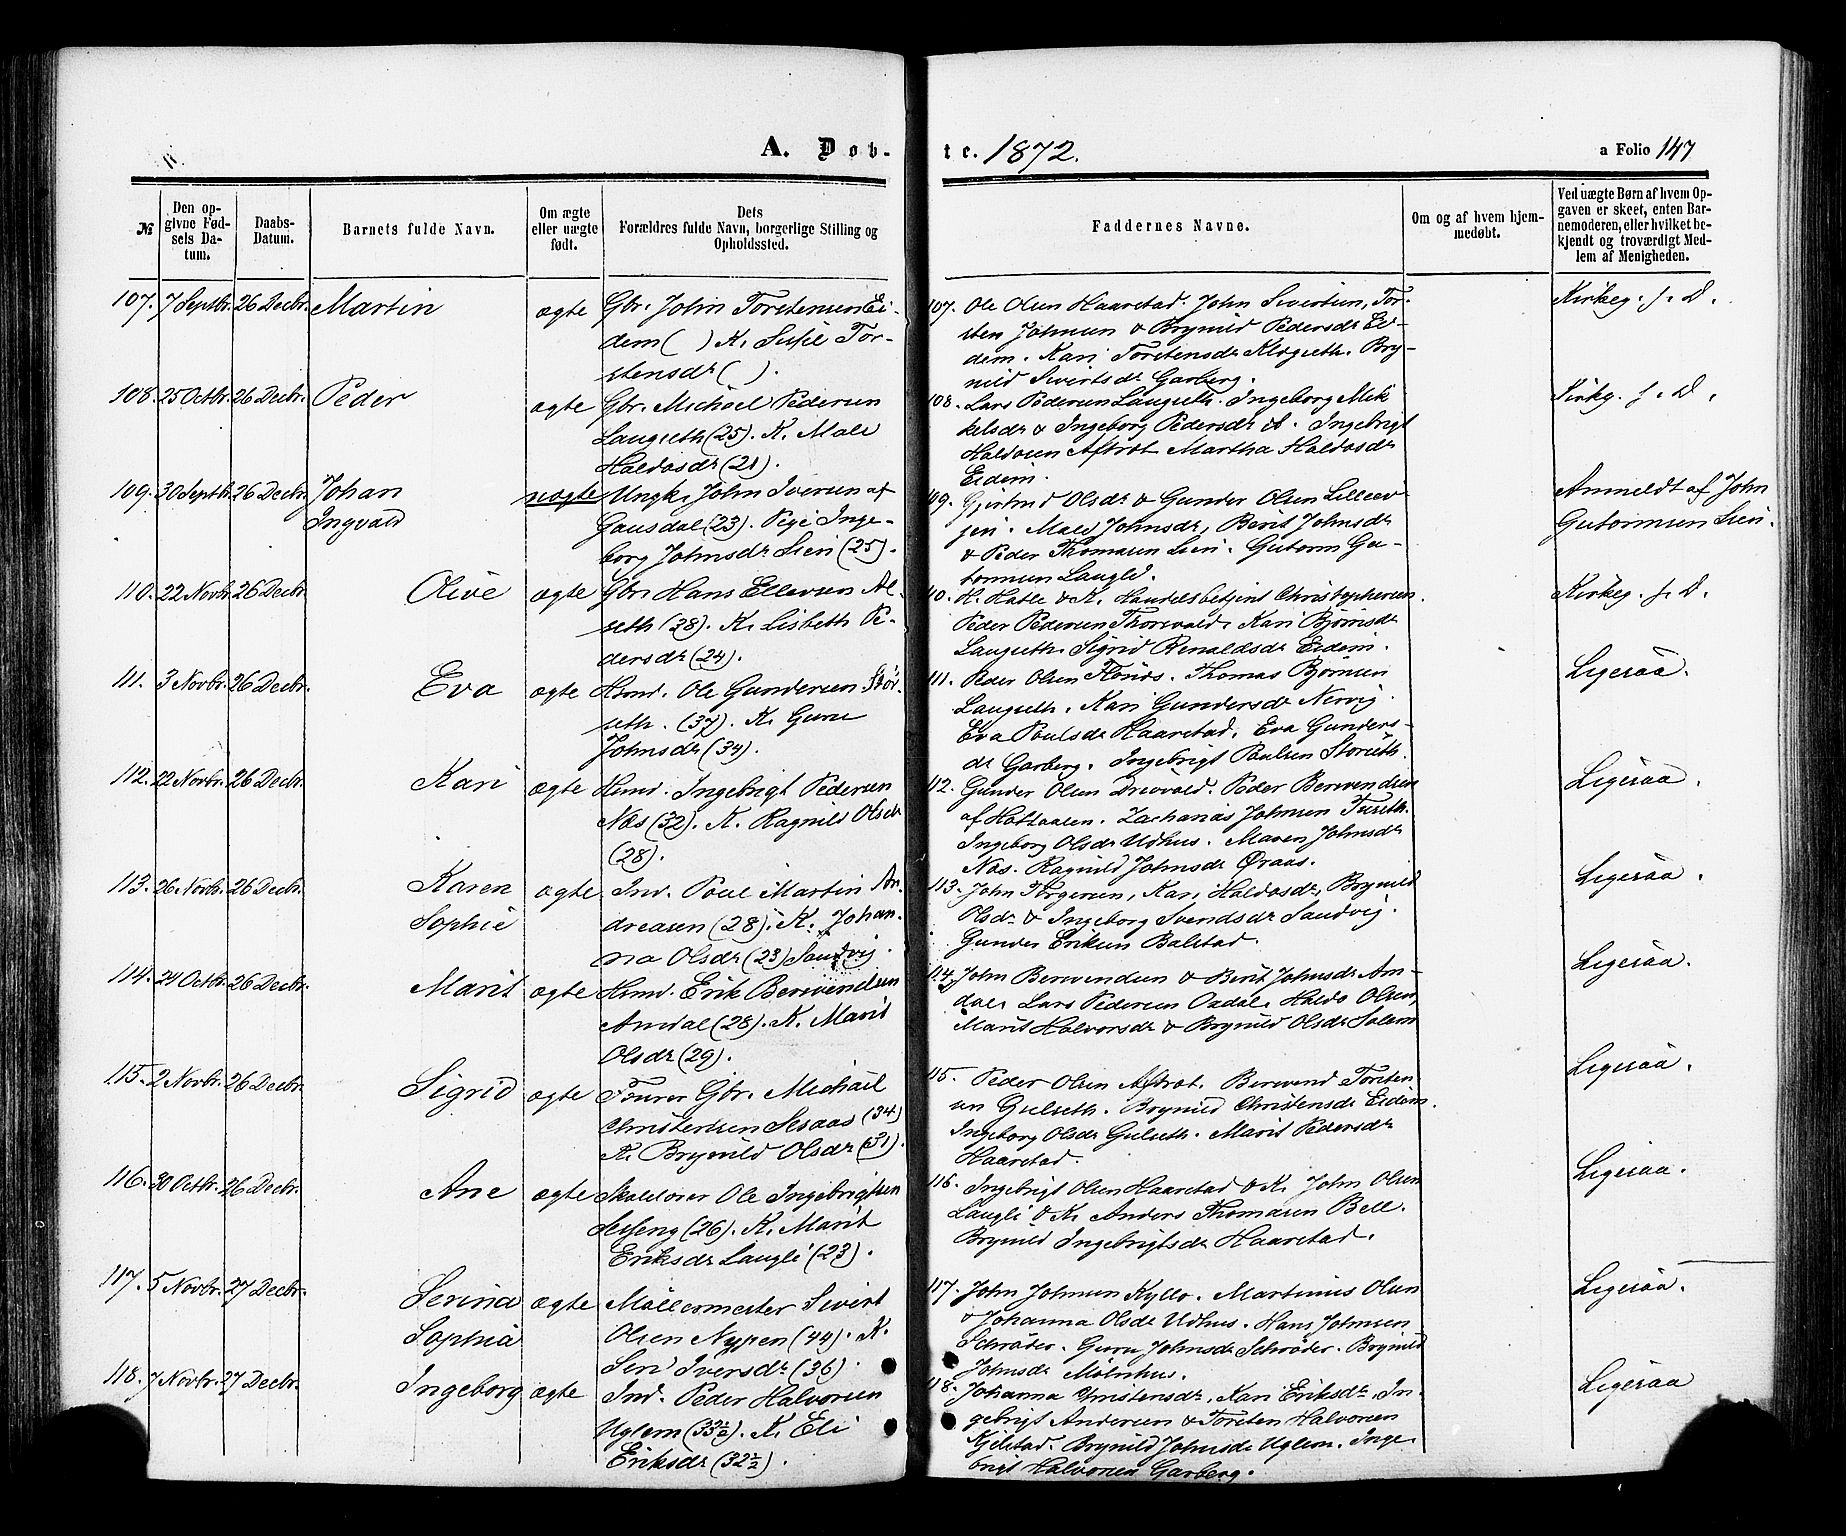 A. Døb-
te. 1872.
a Folio 147
№
Den op-
givne Fød-
sels Da-
tum.
Daabs-
Datum.
Barnets fulde Navn.
Om ægte
eller uægte
født.
Dets
Forældres fulde Navn, borgerlige Stilling og
Opholdssted.
Faddernes Navne.
Om og af hvem hjem-
medøbt.
Ved uægte Børn af hvem Op-
gaven er skeet, enten Bar-
nemoderen, eller hvilket be-
kjendt og troværdigt Med-
lem af Menigheden.
107. 7 Septbr. 26 Decbr. Martin ægte Gbr. John Torstensen Ei-
dem ( ) K. Tor-
stensdr ( ).
107. Ole Olsen Haarstad. John Sivertsen, Tor-
sten Johnsen & Brynild Pedersdr Ei-
dem. Kari Torstensdr Klegseth. Bry-
nild Sivertsdr Garberg.
Kirkeg. s. D.
108. 25 Octbr. 26 Decbr. Peder ægte Gbr. Michael Pedersen
Laugseth (25). K. Mali
Haldosdr (21).
108. Lars Pedersen Laugseth. Ingeborg Mik-
kelsdr & Ingeborg Pedersdr. Ingebrigt
Haldosen Aftrøt. Martha Haldosdr
Eidem.
Kirkg. s. D.
109. 30 Septbr. 26 Decbr. Johan
Ingvald
uægte Ungk. John Iversen af
Gausdal (23). Pige Inge-
borg Johnsdr Lien (25).
109. Gjertrud Olsdr & Gunder Olsen Lilleev-
jen. Mali Johnsdr, Berit Johnsdr
& Peder Thomasen Lien. Gutorm Gu-
tormsen Laugli.
Anmeldt af John
Gutormsen Lien.
110. 22 Novbr. 26 Decbr. Olive ægte Gbr. Hans Ellevsen Al-
seth (28). K. Lisbeth Pe-
dersdr (24).
110. H. Hatle & K. Handelsbetjent Christophersen.
Peder Pedersen Thorsvald. Kari Bjørnsdr
Laugseth. Sigrid Renaldsdr Eidem.
Kirkeg. s. D.
111. 3 Novbr. 26 Decbr. Eva ægte Hsmd. Ole Gundersen Stor-
seth. (37). K. Guru
Johnsdr (34).
111. Peder Olsen Flønes. Thomas Bjørnsen
Laugseth. Kari Gundersdr Nervig.
Eva Poulsdr Haarstad. Eva Gunders-
dr Garberg. Ingebrigt Paulsen Storseth.
Ligesaa.
112. 22 Novbr. 26 Decbr. Kari ægte Hsmd. Ingebrigt Pedersen
Næs (32). K. Ragnild Olsdr
(28).
112. Gunder Olsen Drivvold. Peder Bersvendsen
af Holtaalen. Zacharias Johnsen Fuseth.
Ingeborg Olsdr Udhus. Maren Johnsdr
Næs. Ragnild Johnsdr Øraas.
Ligesaa.
113. 26 Novbr. 26 Decbr. Karen
Sophie
ægte Ind. Poul Martin An-
dreasen (28). K. Johan-
na Olsdr (23) Sandvig.
113. John Torgersen, Kari Haldosdr, Brynild
Olsdr & Ingeborg Svendsdr Sandvig.
Gunder Eriksen Balstad.
Ligesaa.
114. 24 Octbr. 26 Decbr. Marit ægte Hsmd. Erik Bersvendsen
Amdal (28). K. Marit
Olsdr (29).
114. John Bersvendsen & Berit Johnsdr Am-
dal. Lars Pedersen Uadal. Haldo Olsen,
Marit Halvorsdr & Brynild Olsdr Solem
Ligesaa.
115. 2 Novbr. 26 Decbr. Sigrid ægte Fourer Gbr. Michael
Christensen Sesaas (34)
K. Brynild Olsdr (31).
115. Peder Olsen Aftrøt. Bersvend Torsten-
sen Gulseth. Brynild Christensdr Eidem.
Ingeborg Olsdr Gulseth. Marit Pedersdr
Haarstad.
Ligesaa.
116. 30 Octbr. 26 Decbr. Ane ægte Skolelærer Ole Ingebrigtsen
Selseng (26). K. Marit
Eriksdr Laugli (23).
116. Ingebrigt Olsen Haarstad & K. John Olsen
Laugli & K. Anders Thomasen Bell.
Brynild Ingebrigtsdr Haarstad.
Ligesaa.
117. 5 Novbr. 27 Decbr. Serina
Sophia
ægte Møllermester Sivert
Olsen Nypen (44). K.
Seri Iversdr (36).
117. John Johnsen Kyllo. Martinus Olsen
& Johanna Olsdr Udhus. Hans Johnsen
Schrøder. Guru Johnsdr Schrøder. Brynild
Johnsdr Mølnhus.
Ligesaa.
118. 7 Novbr. 27 Decbr. Ingeborg ægte Ind. Peder Halvorsen
Uglem (33½). K. Eli
Eriksdr (32½).
118. Johanna Christensdr, Kari Eriksdr, In-
gebrigt Andersen & Torsten Halvorsen
Kjelstad. Brynild Johnsdr Uglem. Inge-
brigt Halvorsen Garberg.
Ligesaa